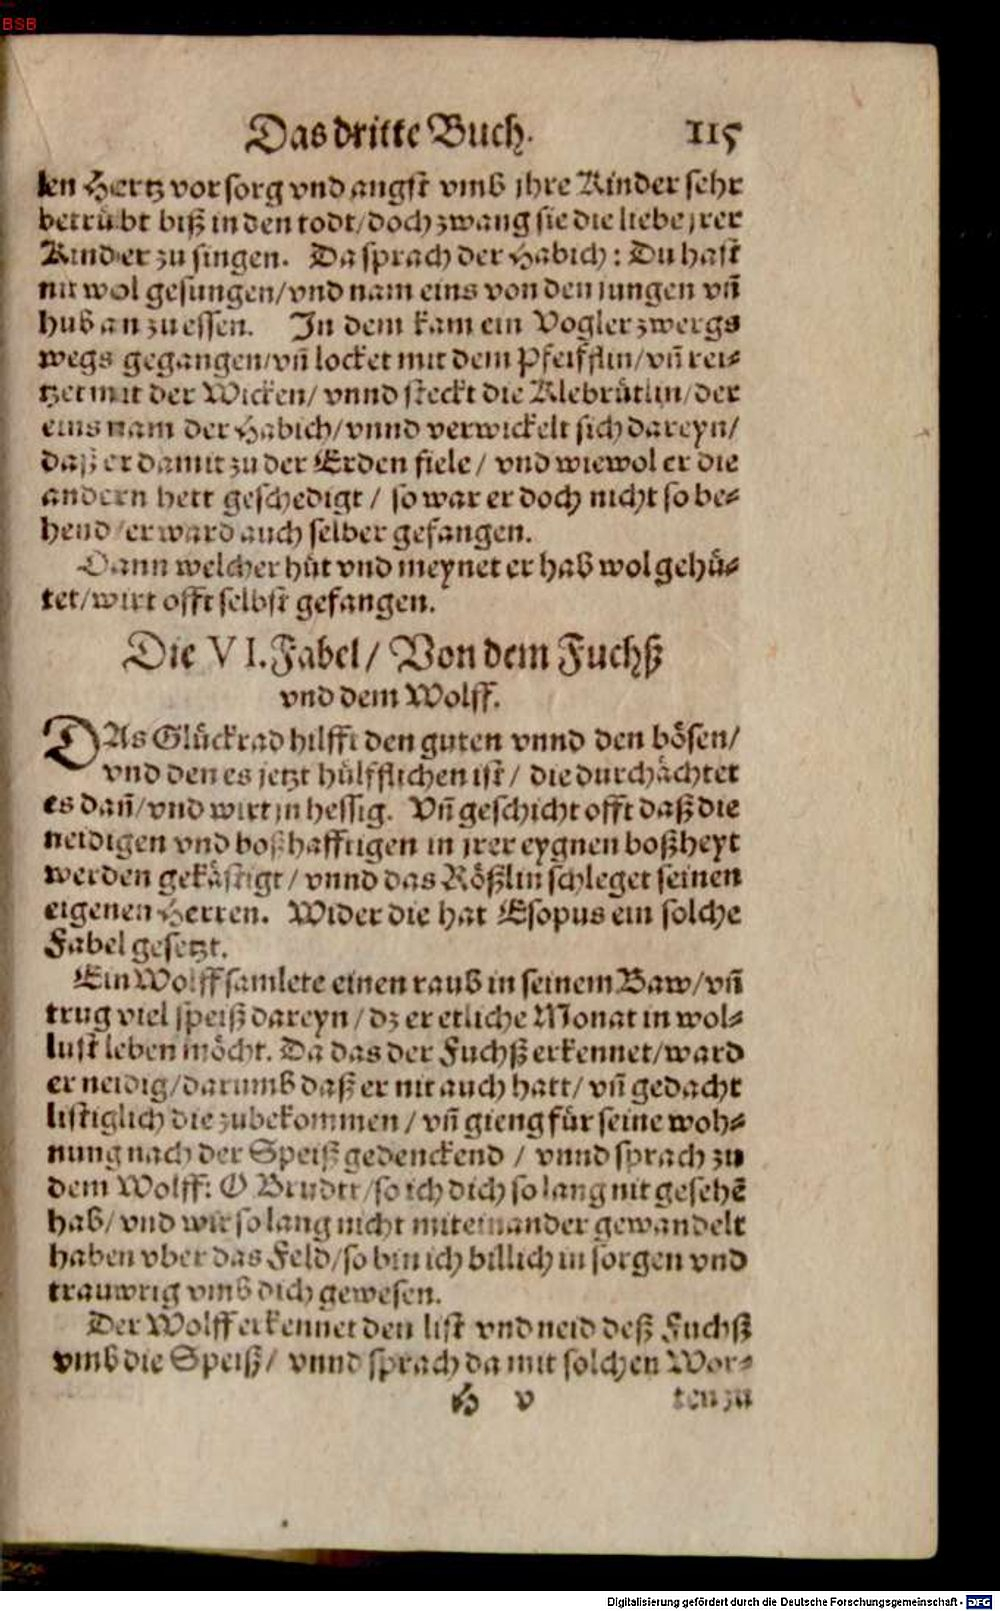 BSB
Das dritte Buch. 115
len Hertz vor sorg vnd angst vmb jhre Kinder sehr
betrübt biß in den todt/ doch zwang sie die liebe jrer
Kinder zu singen. Da sprach der Habich: Du hast
nit wol gesungen/ vnd nam eins von den jungen vñ
hub an zu essen. In dem kam ein Vogler zwergs
wegs gegangen/ vñ locket mit dem Pfeifflin/ vñ rei⸗
tzet mit der Wicken/ vnnd steckt die Klebrütlin/ der
eins nam der Habich/ vnnd verwickelt sich dareyn/
daß er damit zu der Erden fiele/ vnd wiewol er die
andern hett geschedigt/ so war er doch nicht so be⸗
hend/ er ward auch selber gefangen.
Dann welcher hüt vnd meynet er hab wol gehü⸗
tet/ wirt offt selbst gefangen.
Die VI. Fabel/ Von dem Fuchß
vnd dem Wolff.
DAs Glückrad hilfft den guten vnnd den bösen/
vnd den es jetzt hülfflichen ist/ die durchächtet
es dañ/ vnd wirt jn hessig. Vñ geschicht offt daß die
neidigen vnd boßhafftigen in jrer eygnen boßheyt
werden gekästigt/ vnnd das Rößlin schleget seinen
eigenen Herren. Wider die hat Esopus ein solche
Fabel gesetzt.
Ein Wolff samlete einen raub in seinem Baw/ vñ
trug viel speiß dareyn/ dz er etliche Monat in wol⸗
lust leben möcht. Da das der Fuchß erkennet/ ward
er neidig/ darumb daß er nit auch hatt/ vñ gedacht
listiglich die zubekommen/ vñ gieng für seine woh⸗
nung nach der Speiß gedenckend/ vnnd sprach zu
dem Wolff: O Bruder/ so ich dich so lang nit gesehē
hab/ vnd wir so lang nicht miteinander gewandelt
haben vber das Feld/ so bin ich billich in sorgen vnd
trauwrig vmb dich gewesen.
Der Wolff erkennet den list vnd neid deß Fuchß
vmb die Speiß/ vnnd sprach da mit solchen Wor⸗
H v ten zu
Digitalisierung gefördert durch die Deutsche Forschungsgemeinschaft - DFG